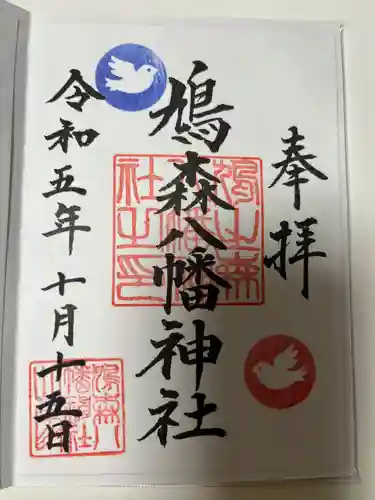 奉拝
鳩森八幡神社
令和五年十月十五日
鳩森八幡神社之印